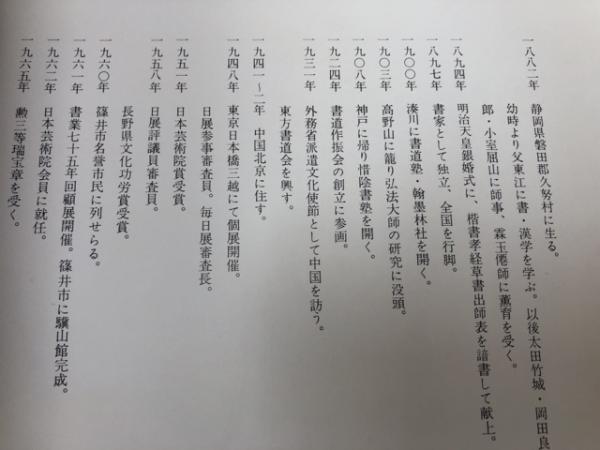 一八八二年　静岡県磐田郡久努村に生る。
幼時より父東江に書・漢学を学ぶ。以後太田竹城・岡田良
郎・小室屈山に師事、霖玉僊師に薫育を受く。
一八九四年　明治天皇銀婚式に、楷書孝経草書出師表を諳書して献上。
一八九七年　書家として独立、全国を行脚。
一九〇〇年　湊川に書道塾・翰墨林社を開く。
一九〇三年　高野山に籠り弘法大師の研究に没頭。
一九〇八年　神戸に帰り惜陰書塾を開く。
一九二四年　書道作振会の創立に参画。
一九三一年　外務省派遣文化使節として中国を訪う。
東方書道会を興す。
一九四一～二年　中国北京に住す。
一九四八年　東京日本橋三越にて個展開催。
日展参事審査員。毎日展審査長。
一九五一年　日本芸術院賞受賞。
一九五八年　日展評議員審査員。
長野県文化功労賞受賞。
一九六〇年　篠井市名誉市民に列せらる。
一九六一年　書業七十五年回顧展開催。篠井市に驥山館完成。
一九六二年　日本芸術院会員に就任。
一九六五年　勲三等瑞宝章を受く。